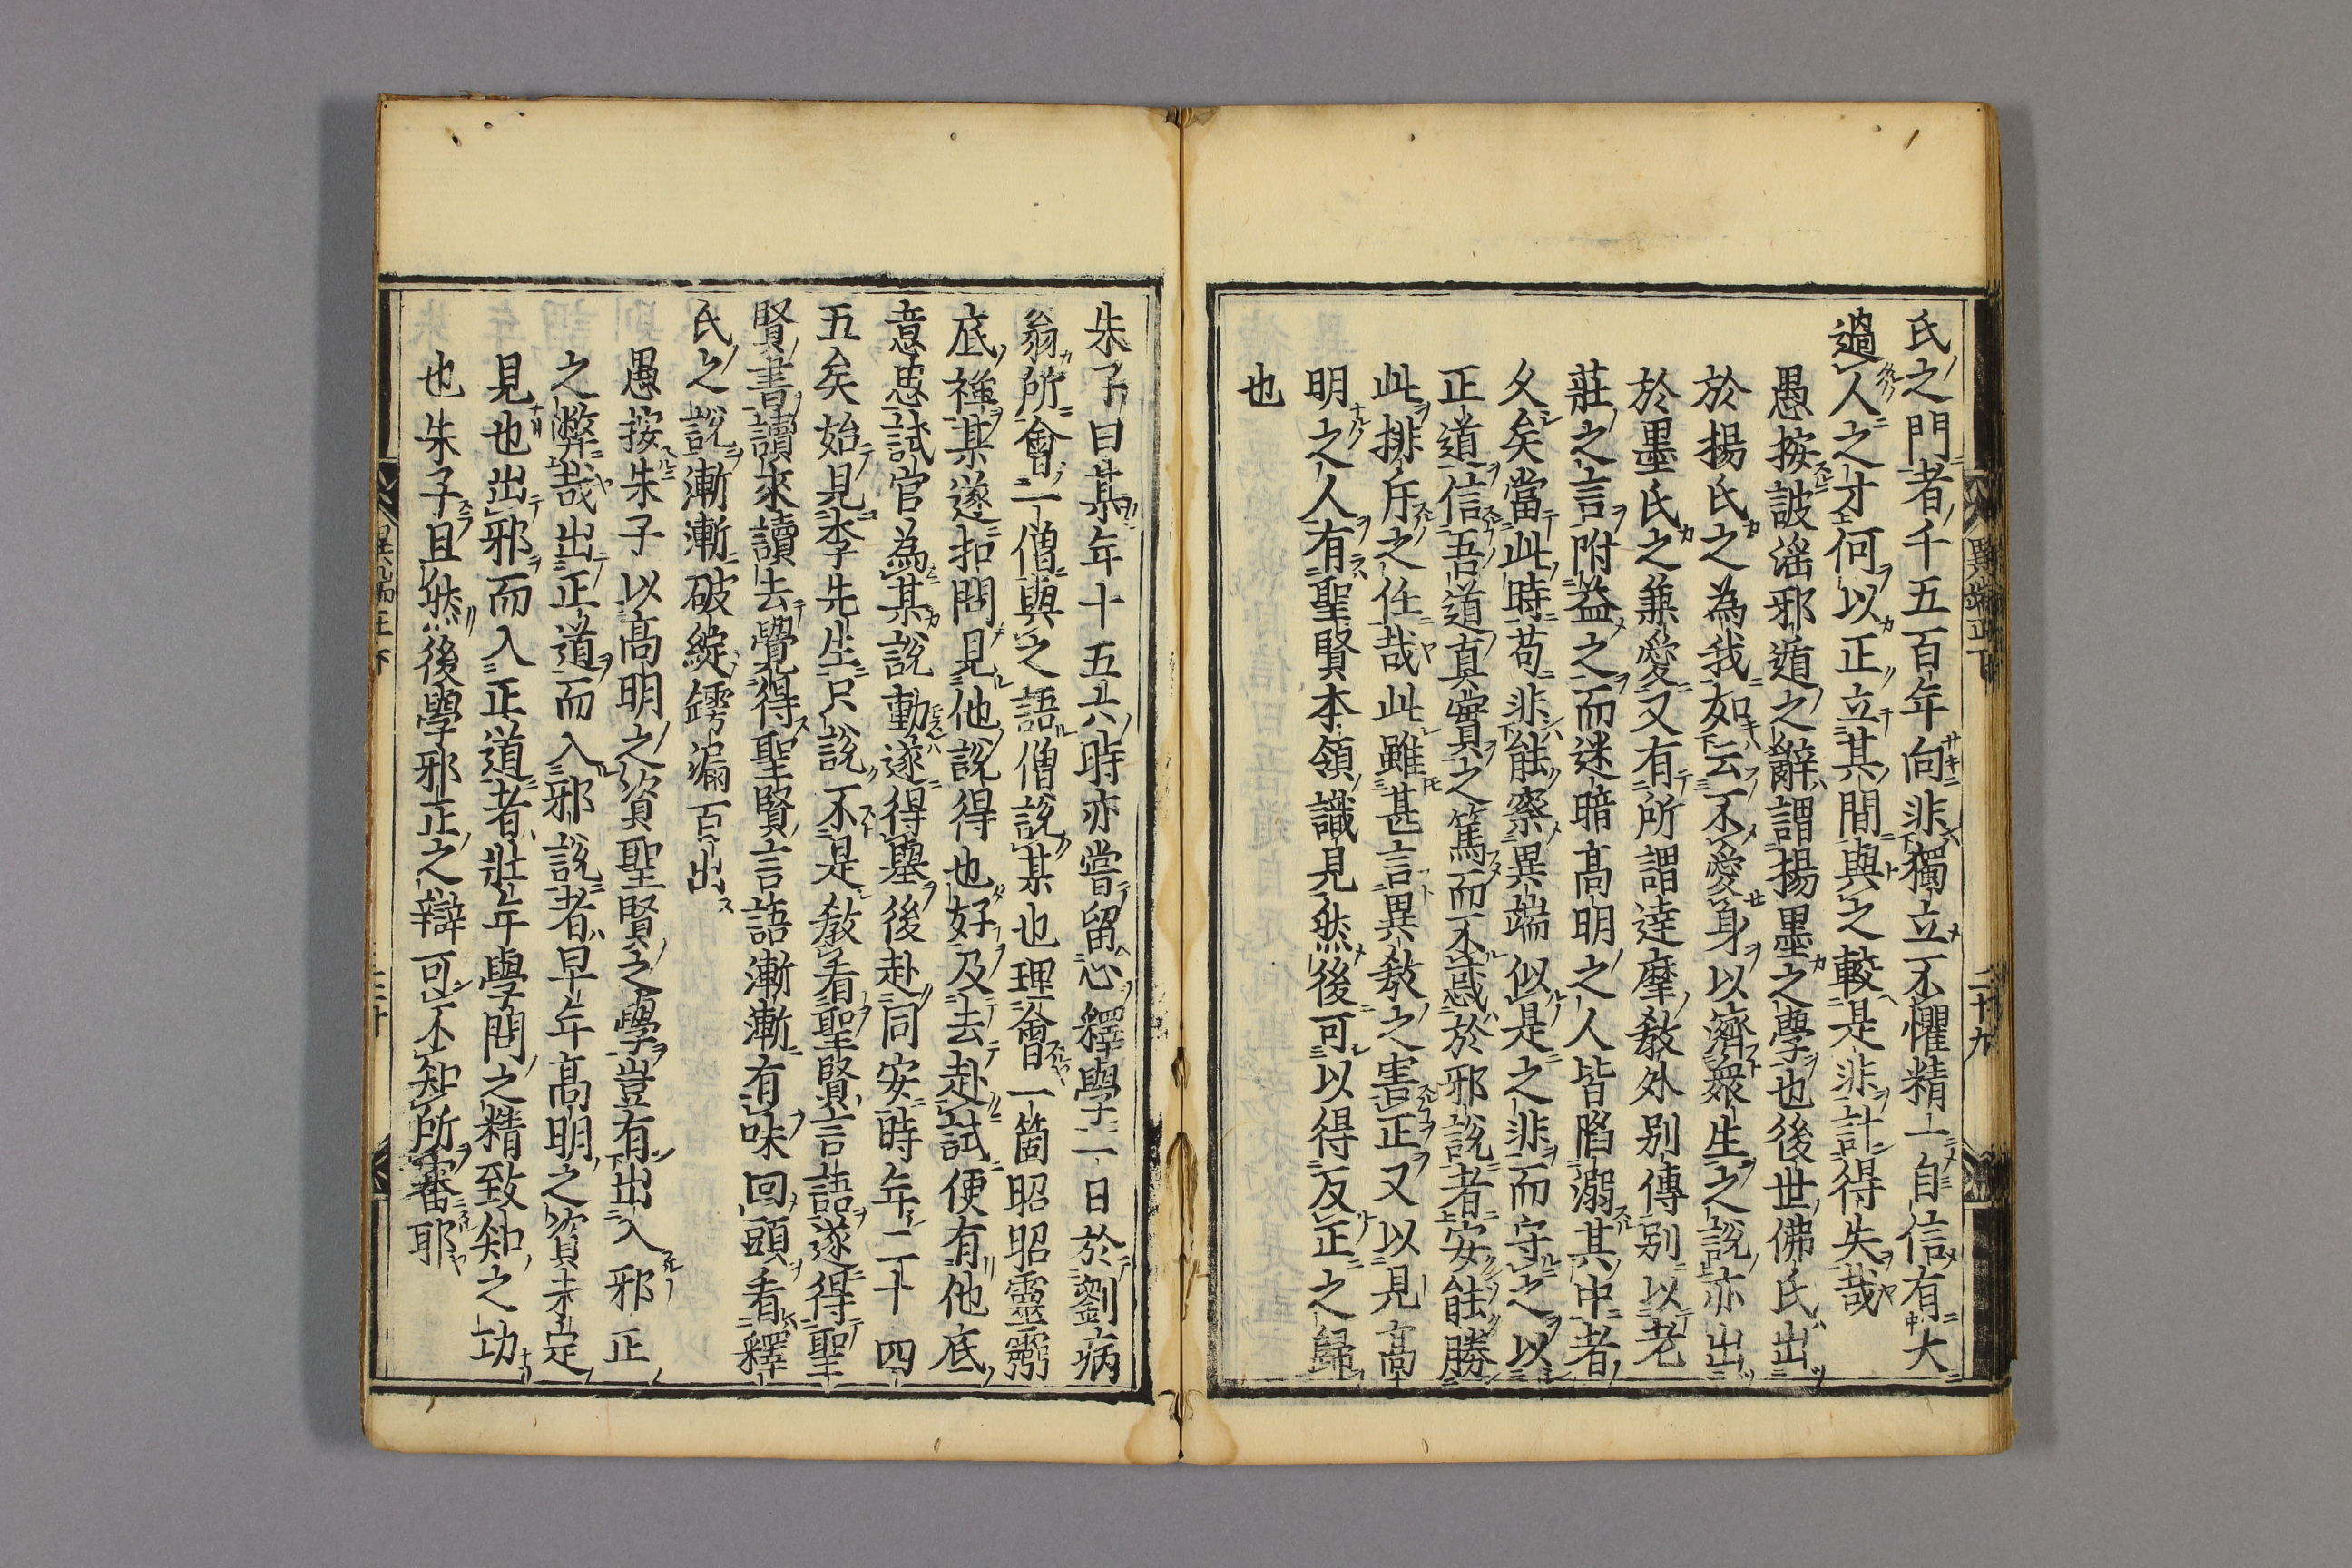 氏之門者千五百年向非獨立不懼精一自信有大
過人之才何以正立其間與之較是非計得失哉
愚按詖淫邪遁之辭謂揚墨之學也後世佛氏出
於揚氏之為我如云不愛身以濟衆生之說亦出
於墨氏之兼愛又有所謂達摩教外別傳別以老
莊之言附益之而迷暗高明之人皆陷溺其中者
久矣當此時苟非能察異端似是之非而守之以
正道信吾道真實之篤而不惑於邪說者安能勝
此排斥之任哉此雖甚言異教之害正又以見高
明之人有聖賢本領識見然後可以得反正之歸
也
異端正下
二十九
朱子曰某年十五六時亦嘗留心釋學一日於劉病
翁所會一僧與之語僧說某也理會一箇昭昭靈靈
底禪某遂扣問見他說得也好及去赴試便有他底
意思試官為某說動遂得舉後赴同安時年二十四
五矣始見李先生只說不是教看聖賢言語遂得聖
賢書讀來讀去覺得聖賢言語漸漸有味回頭看釋
氏之說漸漸破綻鏬漏百出
愚按朱子以高明之資聖賢之學豈有出入邪正
之弊哉出正道而入邪說者早年高明之資未定
見也出邪而入正道者壯年學問之精致知之功
也朱子且然後學邪正之辯可不知所審耶
異端正下
三十